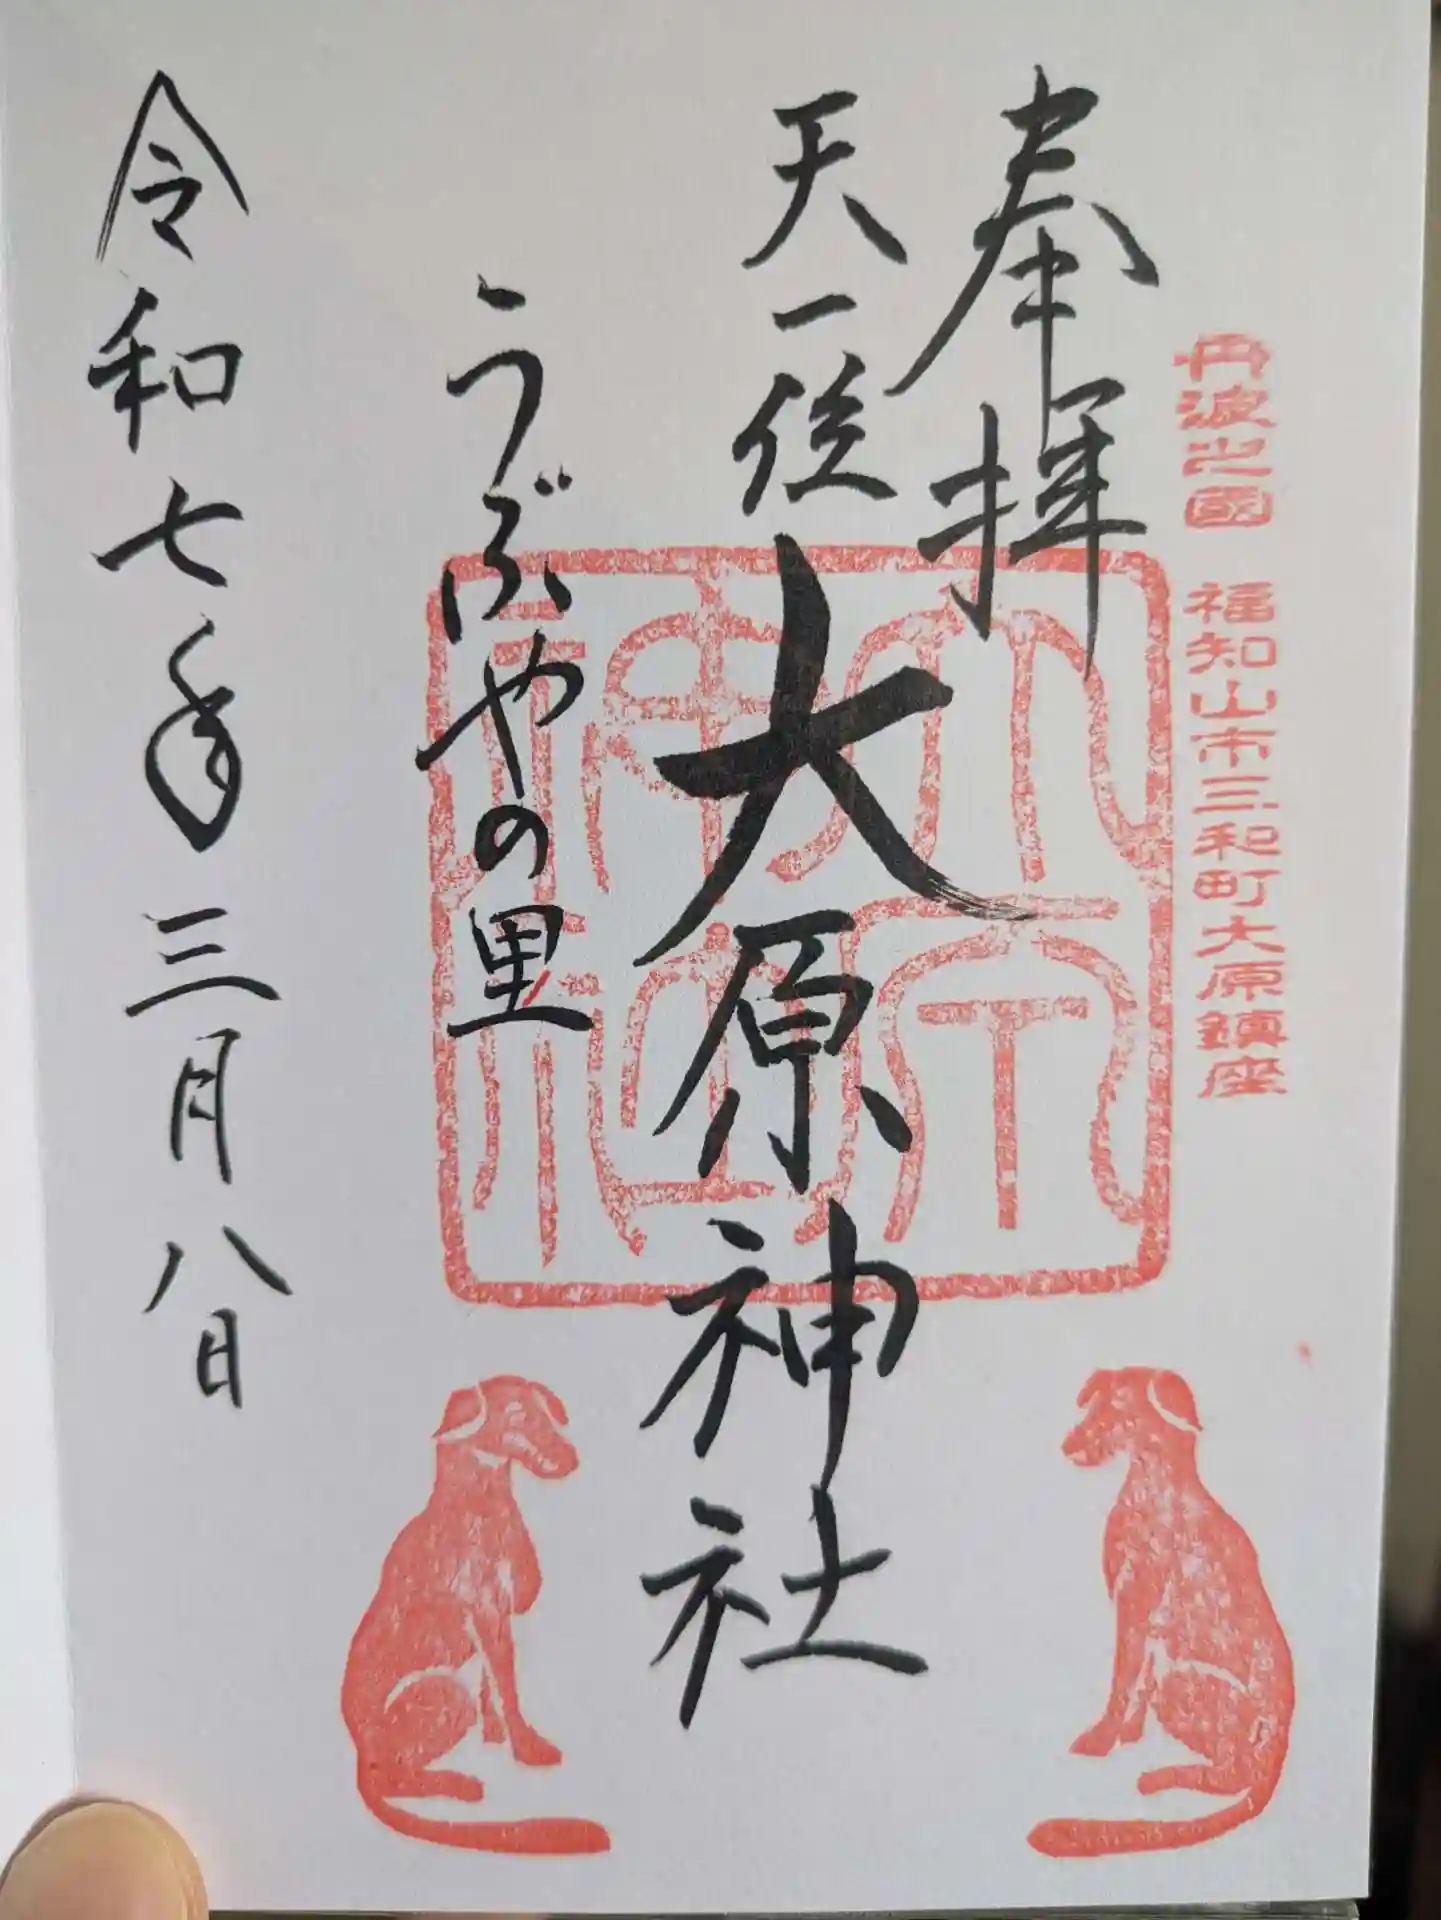 丹波之國 福知山市三和町大原鎮座
奉拝
天一位
大原神社
うぶやの里
令和七年三月八日